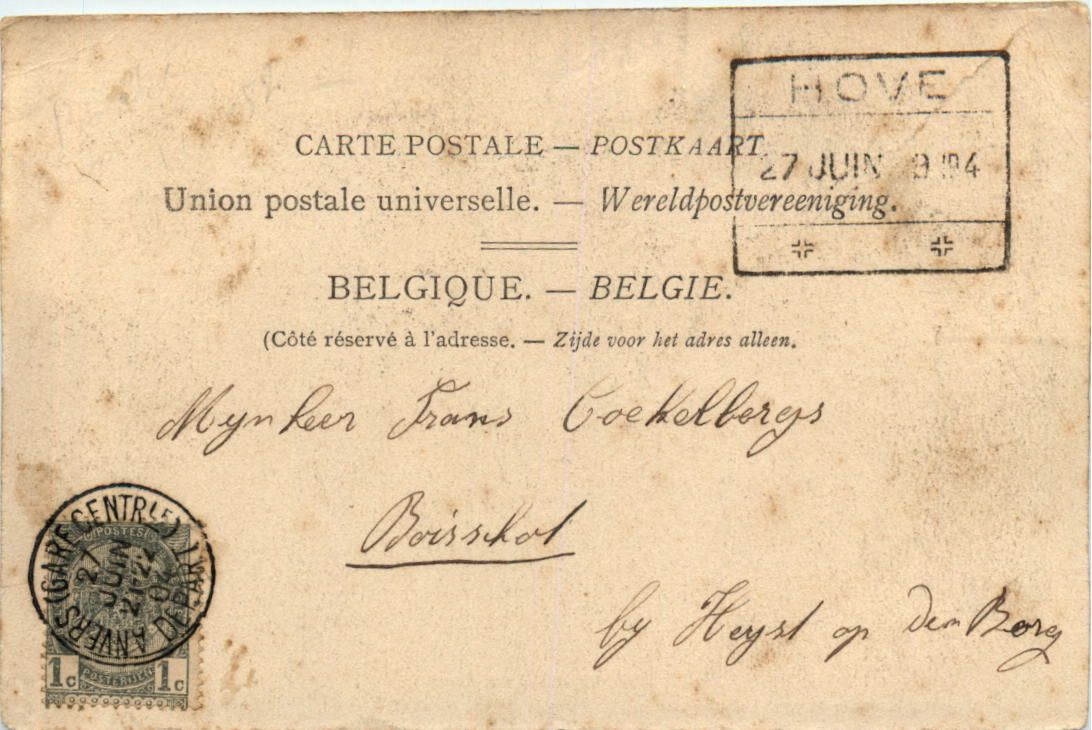 HOVE
CARTE POSTALE — POSTKAART
27 JUIN 9 04
Union postale universelle. — Wereldpostvereeniging.
BELGIQUE. — BELGIE.
(Côté réservé à l'adresse. — Zijde voor het adres alleen.
Mynheer Frans Coekelbergs
Boisschot
by Heyst op Den Berg
ANVERS (GARE CENTRLE) DEPART
27 JUIN
04
POSTES
1c POSTERIJEN 1c